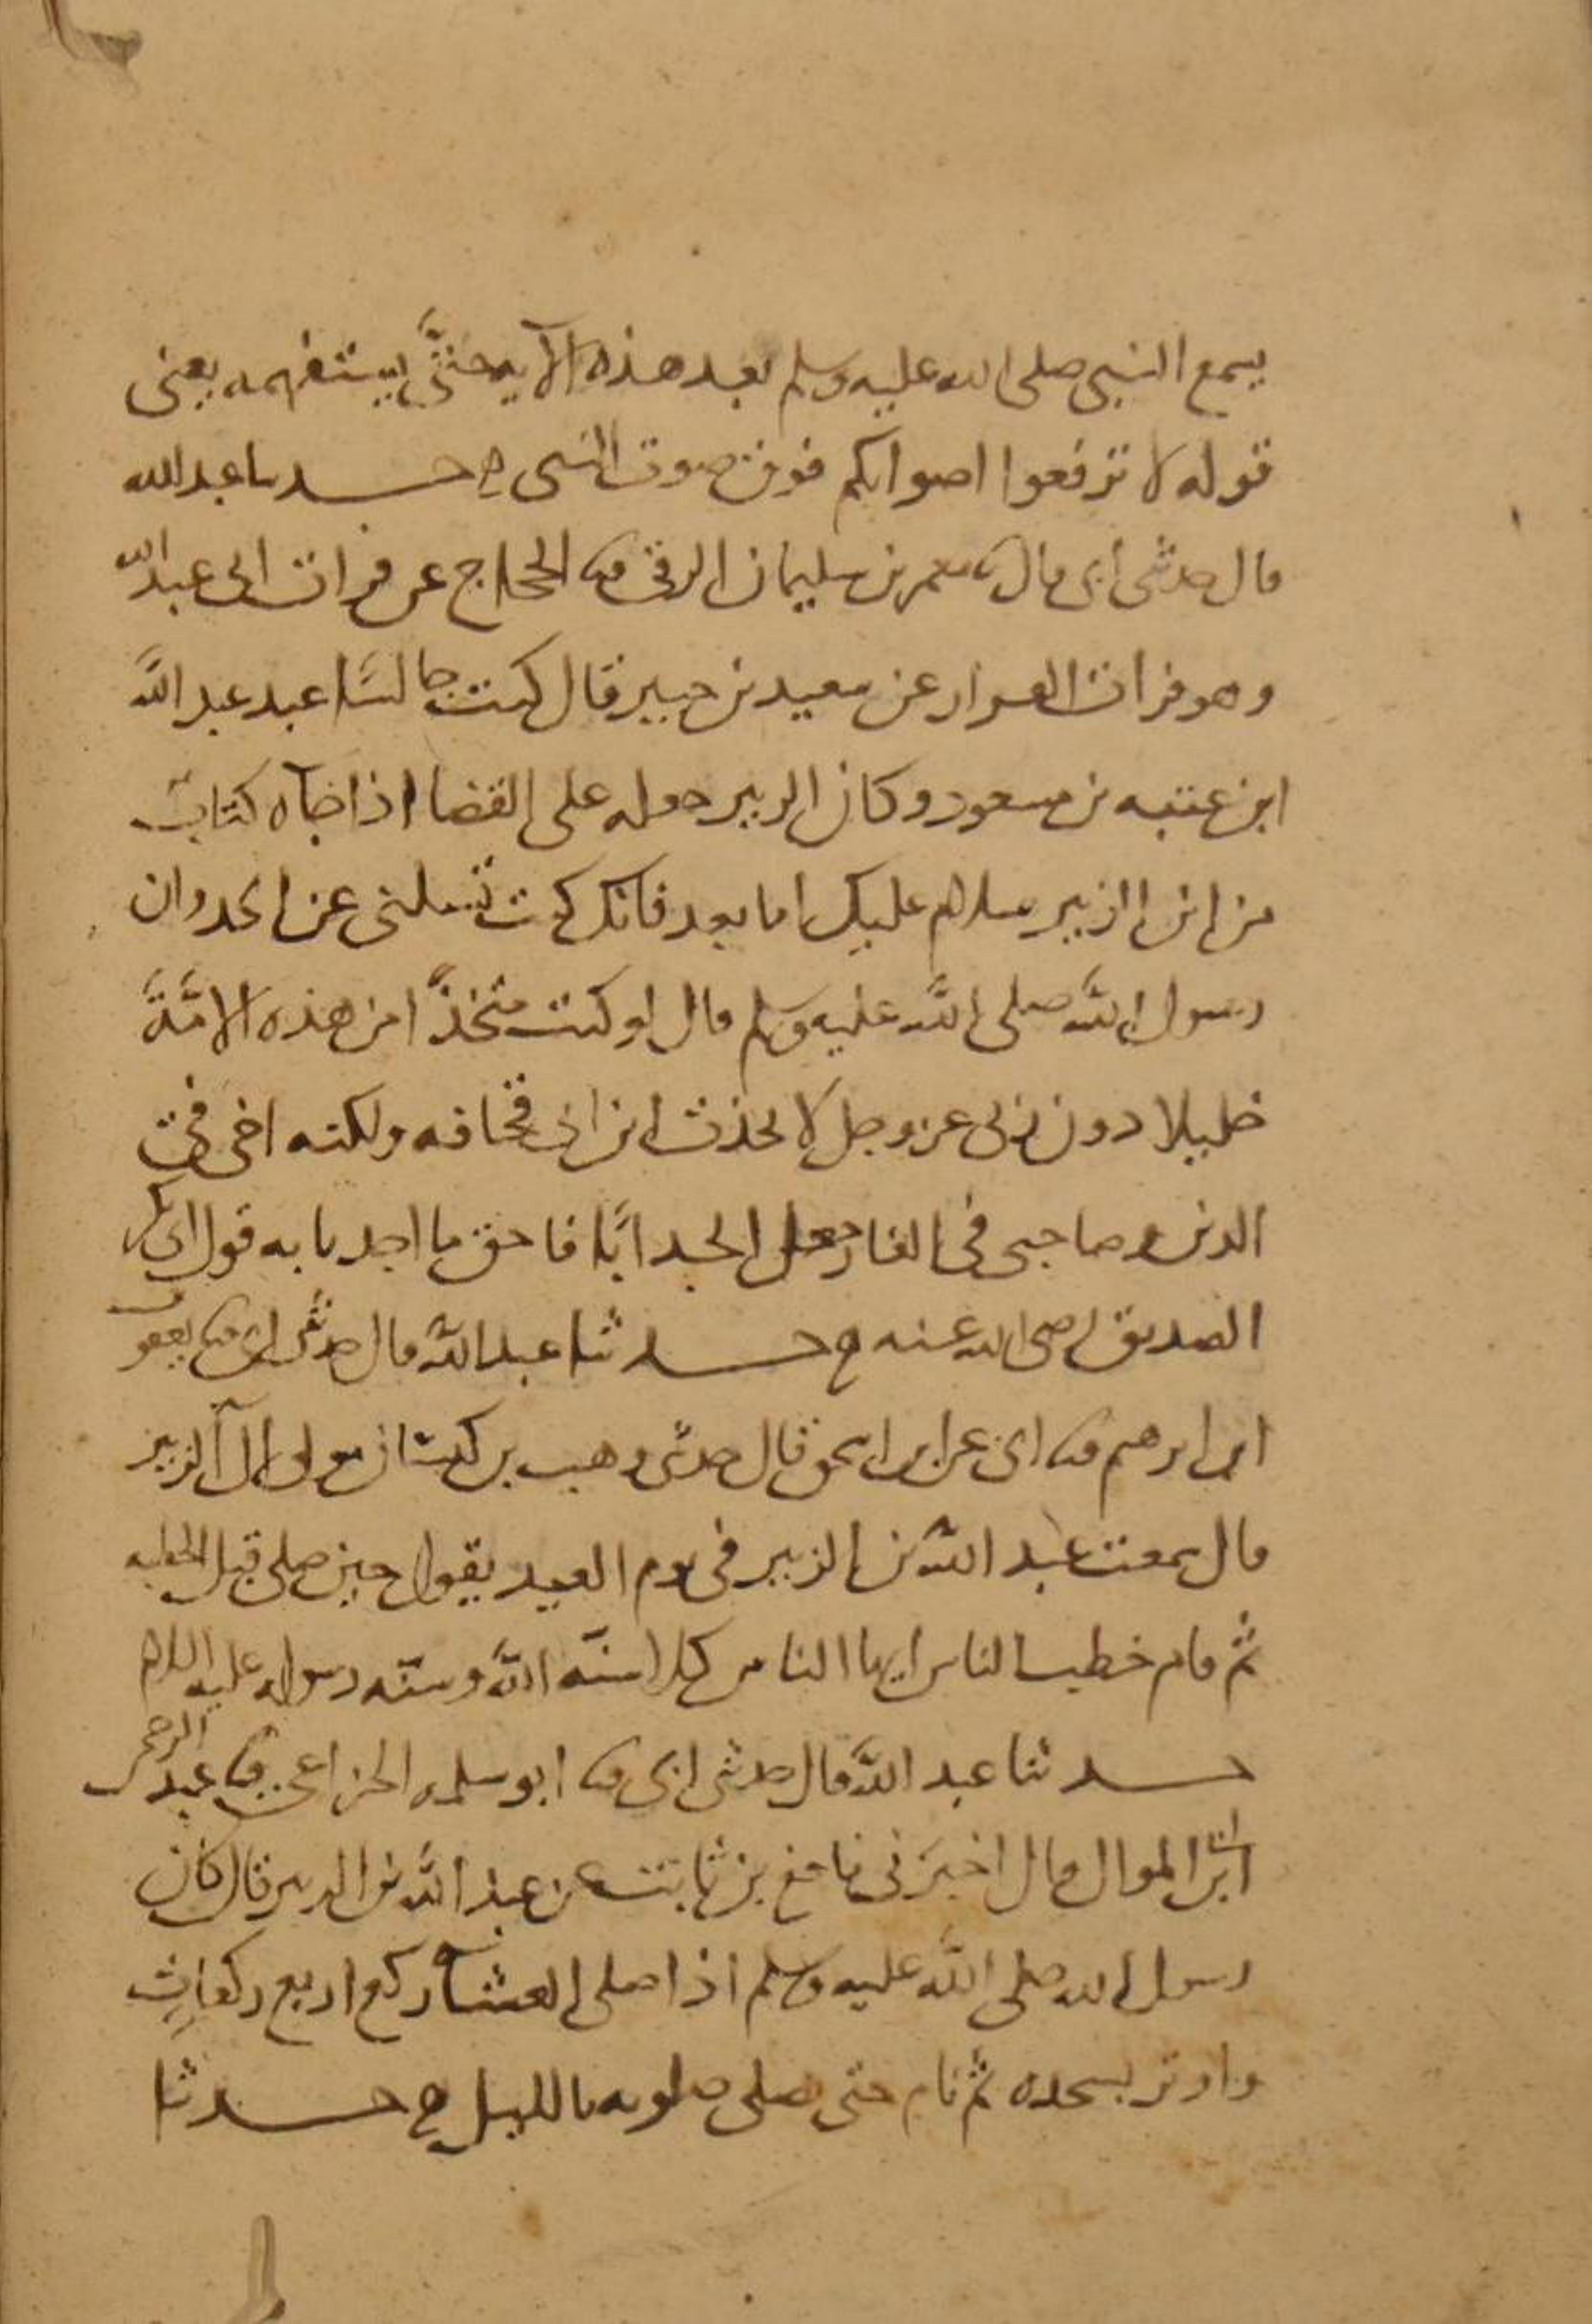 يسمع النبي صلى الله عليه وسلم بعد هذه الآية حتى يستفهمه يعني
قوله لا ترفعوا اصواتكم فوق صوت النبي ح حدثنا عبد الله
قال حدثني أبي قال ثنا معمر بن سليمان الرقي ثنا الحجاج عن فرات ابي عبد الله
وهو فرات القزاز عن سعيد بن جبير قال كنت جالسًا عند عبد الله
ابن عتبه بن مسعود وكان الزبير جعله على القضا اذ اجآه كتاب
من ابن الزبير سلام عليك اما بعد فانك كتبت تسلني عن الجد وان
رسول الله صلى الله عليه وسلم قال لو كنت متخذًا من هذه الامَّة
خليلا دون ربي عز وجل لاتخذت ابن ابي قحافه ولكنه اخي في
الدين وصاحبي في الغار جعل الجد ابًا فاحق ما اخذنا به قول ابي بكر
الصديق رضي الله عنه ح حدثنا عبد الله قال حدثني ابي ثنا يعقوب
ابن ابرهيم ثنا ابي عن ابن اسحق قال حدثني وهب بن كيسان مولى ال الزبير
قال سمعت عبد الله بن الزبير في يوم العيد يقول حين صلى قبل الخطبه
ثم قام خطب الناس ايها الناس كلا سنة الله وسنه رسوله عليه السلام
حدثنا عبد الله قال حدثني ابي ثنا ابو سلمه الخزاعي ثنا عبد الرحمن
ابن ابي الموال قال اخبرني نافع بن ثابت عن عبد الله بن الزبير قال كان
رسول الله صلى الله عليه وسلم اذا صلى العشآ ركع اربع ركعات
واوتر بسجده ثم نام حتى يصلي صلوته بالليل ح حدثنا